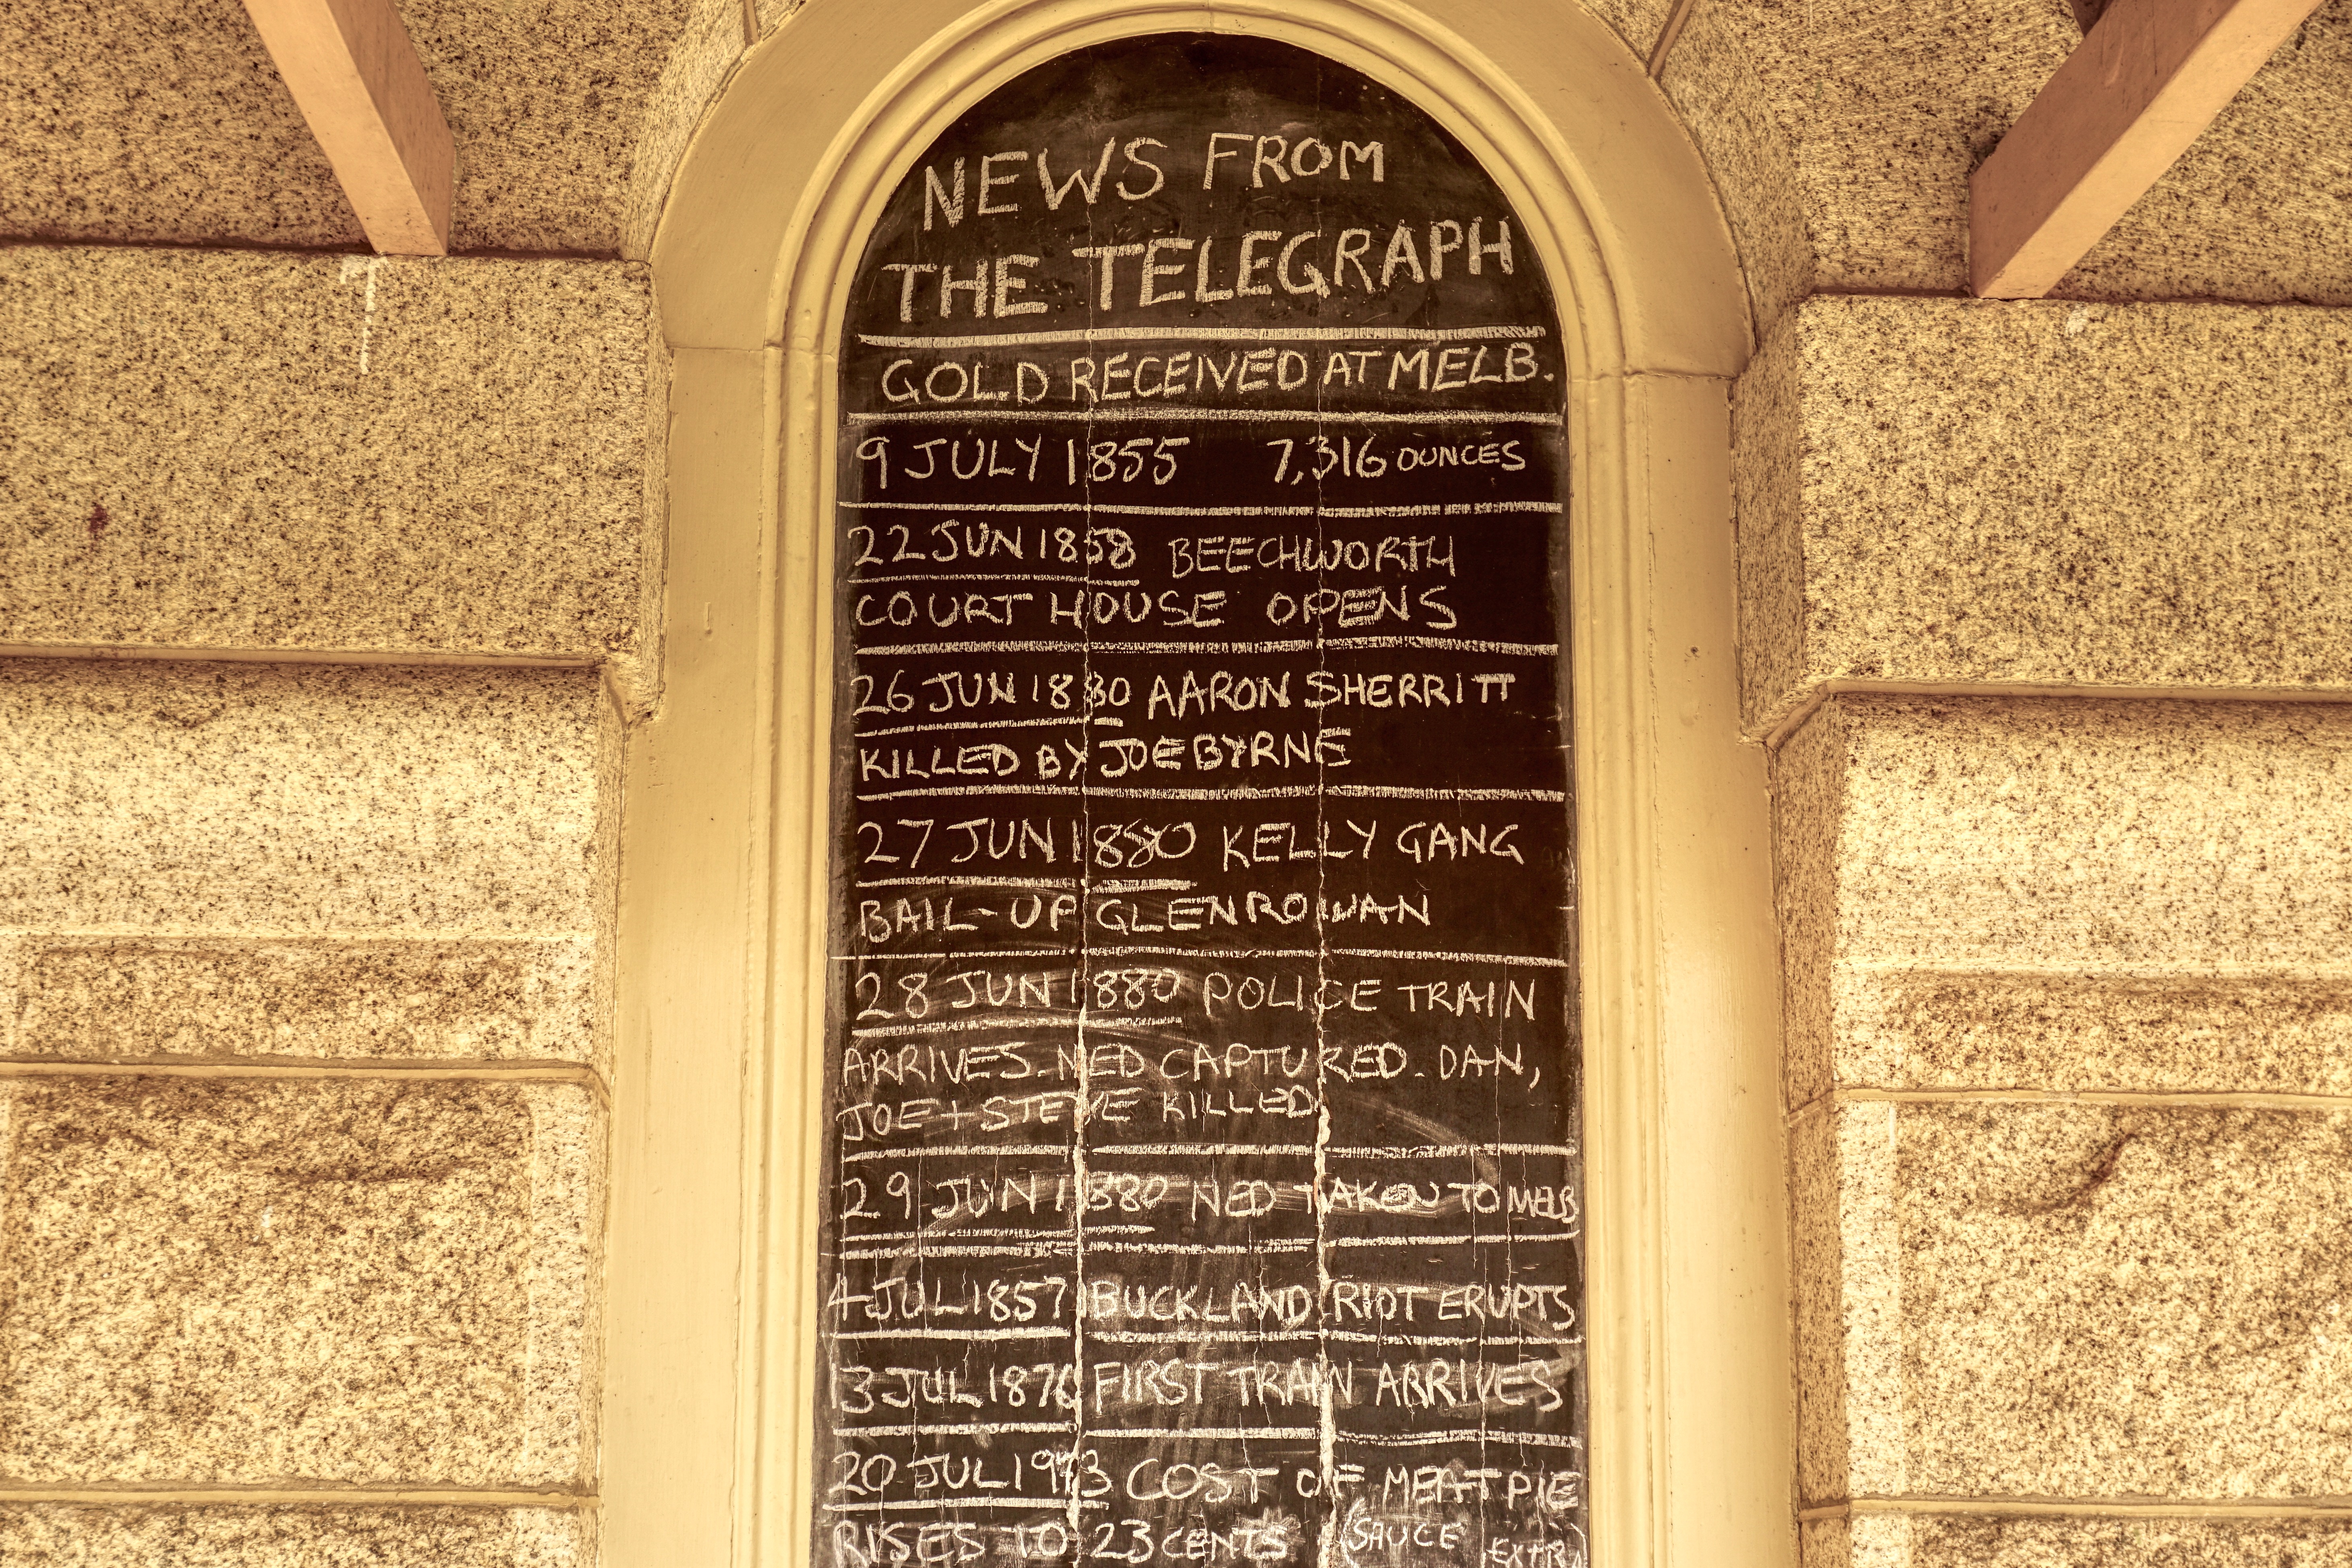 NEWS FROM
THE TELEGRAPH
GOLD RECEIVED AT MELB.
9 JULY 1855 7,316 OUNCES
22 JUN 1858 BEECHWORTH
COURT HOUSE OPENS
26 JUN 1880 AARON SHERRITT
KILLED BY JOE BYRNE
27 JUN 1880 KELLY GANG
BAIL-UP GLENROWAN
28 JUN 1880 POLICE TRAIN
ARRIVES. NED CAPTURED. DAN,
JOE + STEVE KILLED.
29 JUN 1880 NED TAKEN TO MELB
4 JUL 1857 BUCKLAND RIOT ERUPTS
13 JUL 1876 FIRST TRAIN ARRIVES
20 JUL 1973 COST OF MEAT PIE
RISES TO 23 CENTS (SAUCE EXTRA)